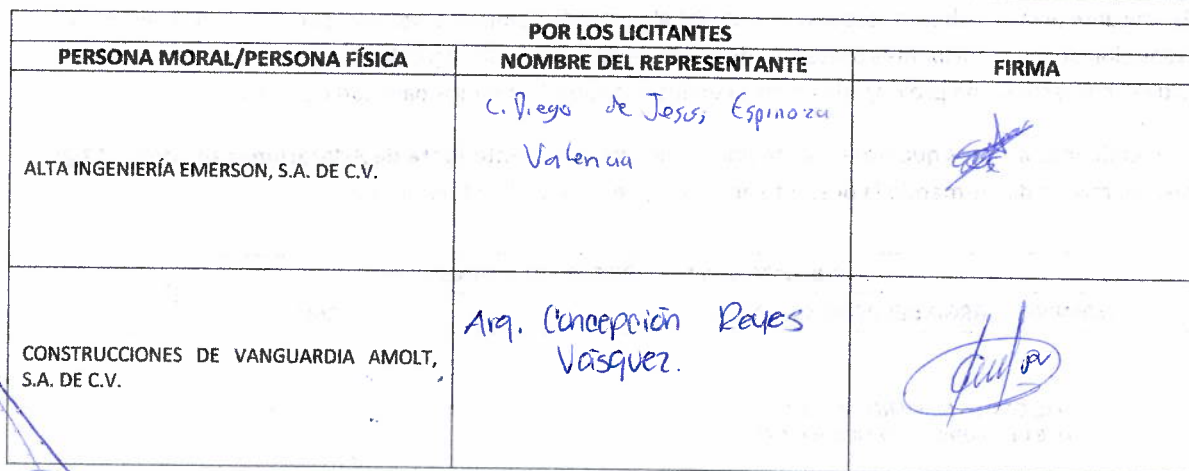 POR LOS LICITANTES
PERSONA MORAL/PERSONA FÍSICA NOMBRE DEL REPRESENTANTE FIRMA
ALTA INGENIERÍA EMERSON, S.A. DE C.V.
C. Diego de Jesus, Espinoza
Valencia
CONSTRUCCIONES DE VANGUARDIA AMOLT,
S.A. DE C.V.
Arq. Concepción Reyes
Vásquez.